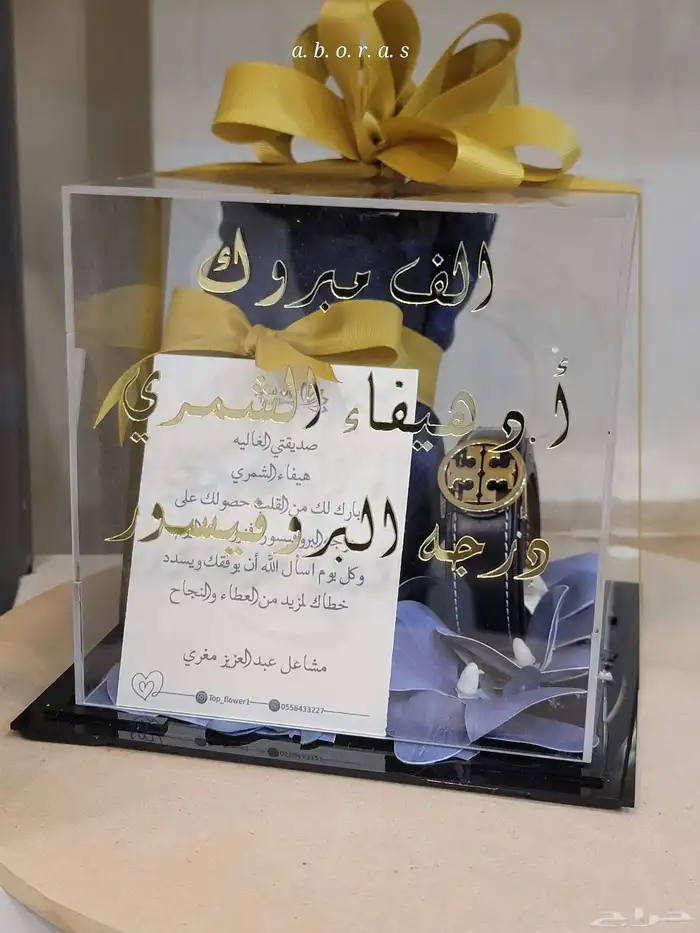 a.b.o.r.a.s
الف مبروك
أ.د هيفاء الشمري
درجه البروفيسور
صديقتي الغاليه
هيفاء الشمري
بارك لك من القلب حصولك على
البروفيسور
وكل يوم اسأل الله أن يوفقك ويسدد
خطاك لمزيد من العطاء والنجاح
مشاعل عبدالعزيز مغري
Top_flower1
0558433227
حراج